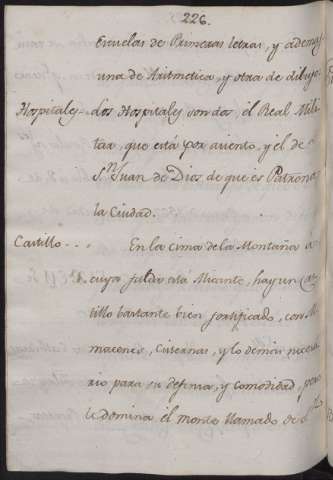 226.
Escuelas de Primeras letras, y ademas
una de Aritmetica, y otra de dibujo
Hospitales - los Hospitales son dos, el Real Mili-
tar, que está por aciento, y el de
Sn. Juan de Dios de que es Patrona
la Ciudad.
Castillo . . . En la cima de la Montaña á
cuya falda está Alicante, hay un Cas-
tillo bastante bien fortificado, con Al-
macenes, Cisternas, y lo demás necesa-
rio para su defensa, y comodidad, pero
le domina el monte llamado de Sn.